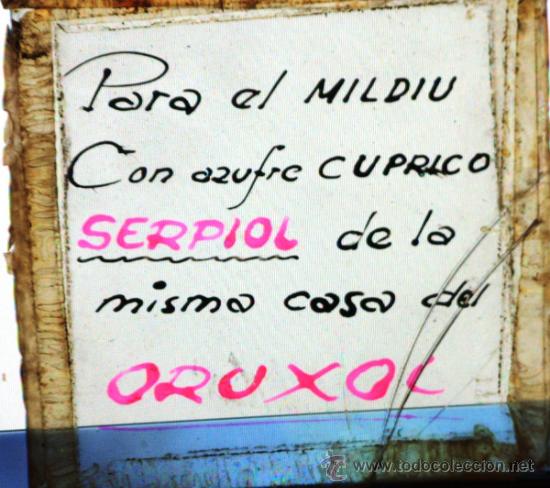 Para el MILDIU
Con azufre CUPRICO
SERPIOL de la
misma casa del
ORUXOL
www.todocoleccion.net